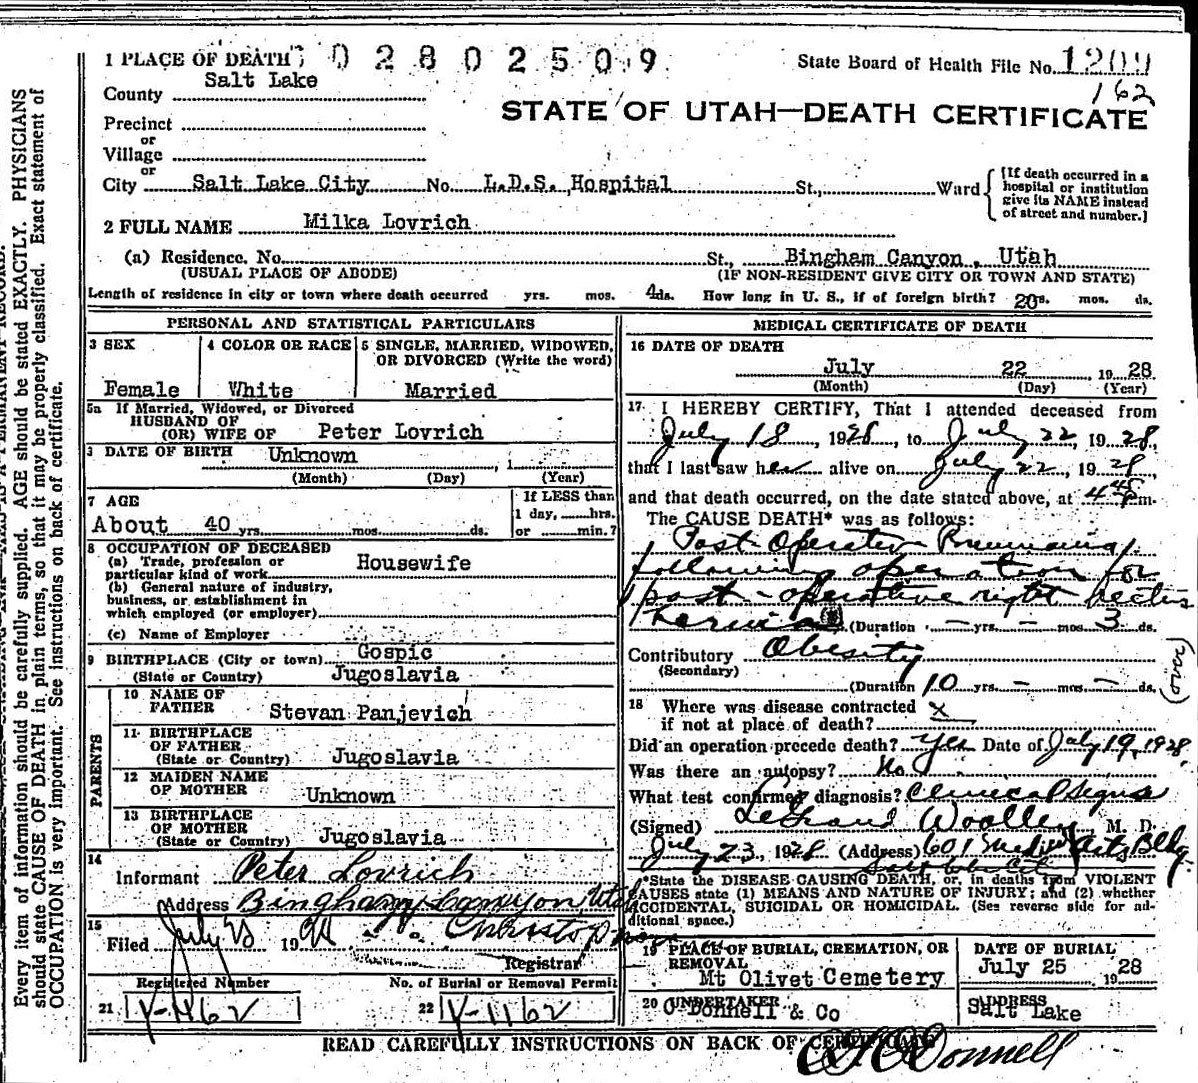 1 PLACE OF DEATH 02802509 State Board of Health File No. 1209
162
County Salt Lake
STATE OF UTAH—DEATH CERTIFICATE
Precinct
or
Village
or
City Salt Lake City No. L.D.S. Hospital St., Ward
[If death occurred in a hospital or institution give its NAME instead of street and number.]
2 FULL NAME Milka Lovrich
(a) Residence. No. St., Bingham Canyon, Utah
(USUAL PLACE OF ABODE) (IF NON-RESIDENT GIVE CITY OR TOWN AND STATE)
Length of residence in city or town where death occurred yrs. mos. 4 ds. How long in U. S., if of foreign birth? 20 s. mos. ds.
PERSONAL AND STATISTICAL PARTICULARS
3 SEX Female
4 COLOR OR RACE White
5 SINGLE, MARRIED, WIDOWED, OR DIVORCED (Write the word) Married
5a If Married, Widowed, or Divorced
HUSBAND OF
(OR) WIFE OF Peter Lovrich
DATE OF BIRTH Unknown , 1
(Month) (Day) (Year)
7 AGE
About 40 yrs. mos. ds.
If LESS than
1 day, hrs.
or min.?
8 OCCUPATION OF DECEASED
(a) Trade, profession or
particular kind of work Housewife
(b) General nature of industry,
business, or establishment in
which employed (or employer)
(c) Name of Employer
9 BIRTHPLACE (City or town) Gospic
(State or Country) Jugoslavia
PARENTS
10 NAME OF
FATHER Stevan Panjevich
11 BIRTHPLACE
OF FATHER
(State or Country) Jugoslavia
12 MAIDEN NAME
OF MOTHER Unknown
13 BIRTHPLACE
OF MOTHER
(State or Country) Jugoslavia
14
Informant Peter Lovrich
Address Bingham Canyon, Utah
15
Filed July 23 19
Registrar
Registered Number No. of Burial or Removal Permit
21 Y-1162 22 Y-1162
MEDICAL CERTIFICATE OF DEATH
16 DATE OF DEATH
July 22, 1928
(Month) (Day) (Year)
17 I HEREBY CERTIFY, That I attended deceased from
July 18, 1928, to July 22, 1928,
that I last saw her alive on July 22, 1928
and that death occurred, on the date stated above, at 4 45 P m.
The CAUSE DEATH* was as follows:
Post Operative Pneumonia,
following operation for
post-operative right rectus
hernia (Duration – yrs. – mos. 3 ds.
Contributory Obesity
(Secondary)
(Duration 10 yrs. – mos. – ds.
(over)
18 Where was disease contracted
if not at place of death? x
Did an operation precede death? Yes Date of July 19, 1928
Was there an autopsy? No
What test confirmed diagnosis? Clinical Signs
(Signed) LeGrand Woolley, M. D.
July 23, 1928 (Address) 601 Medical Arts Bldg.
Salt Lake City
*State the DISEASE CAUSING DEATH, or, in deaths from VIOLENT
CAUSES state (1) MEANS AND NATURE OF INJURY; and (2) whether
ACCIDENTAL, SUICIDAL OR HOMICIDAL. (See reverse side for additional space.)
19 PLACE OF BURIAL, CREMATION, OR
REMOVAL
Mt Olivet Cemetery
DATE OF BURIAL
July 25 1928
20 UNDERTAKER
O'Donnell & Co
ADDRESS
Salt Lake
READ CAREFULLY INSTRUCTIONS ON BACK OF CERTIFICATE
O'Donnell
Every item of information should be carefully supplied. AGE should be stated EXACTLY. PHYSICIANS
should state CAUSE OF DEATH in plain terms, so that it may be properly classified. Exact statement of
OCCUPATION is very important. See instructions on back of certificate.